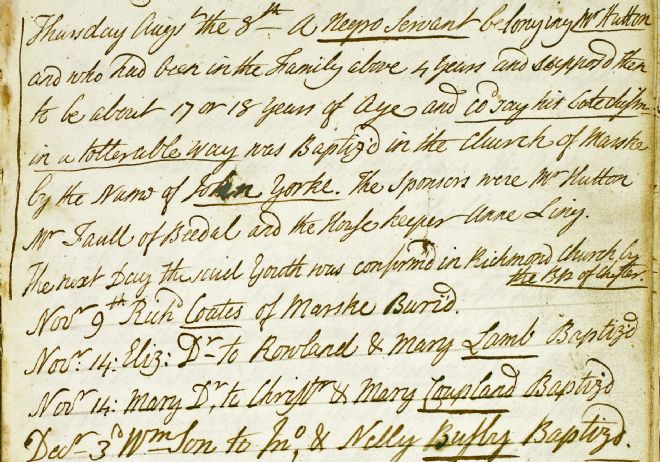 Thursday Augst the 8th A Negro Servant belonging Mr Hutton
and who had been in the Family above 4 Years and suppos'd then
to be about 17 or 18 Years of Age and cod say his Catechism
in a tollerable way was Baptiz'd in the Church of Marske
by the Name of John Yorke. The Sponsors were Mr Hutton
Mr Faull of Bedal and the House keeper Anne Ling.
The next Day the said Youth was confirm'd in Richmond Church by
the Bp of Chester.
Novr 9th Richd Coates of Marske Buried.
Novr. 14: Eliz: Dr to Rowland & Mary Lamb Baptiz'd
Novr. 14: Mary Dr. to Christr & Mary Coupland Baptiz'd
Decr 3d Wm Son to Jno, & Nelly Busby Baptiz'd.